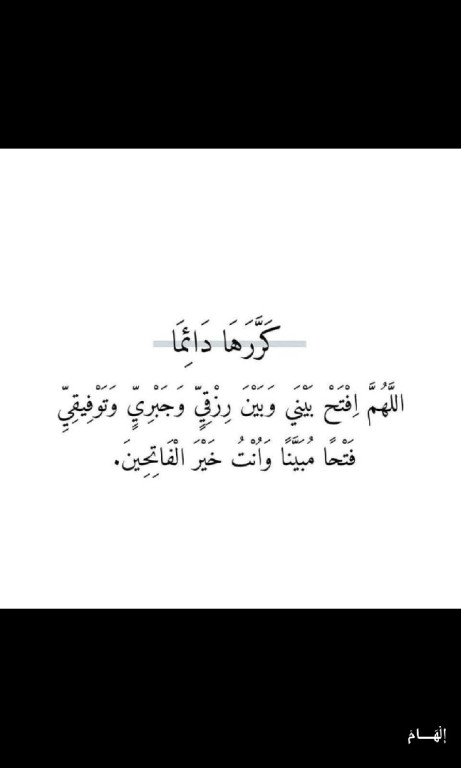 كَرَّرَهَا دَائِمَا
اللَّهُمَّ اِفْتَحْ بَيْنَي وَبَيْنَ رِزْقِيٍّ وَجَبْرِيٍّ وَتَوْفِيقِيٍّ
فَتْحًا مُبَيَّنًا وَاُنْتُ خَيْرَ الْفَاتِحِينَ.
إلْهَـــامْ